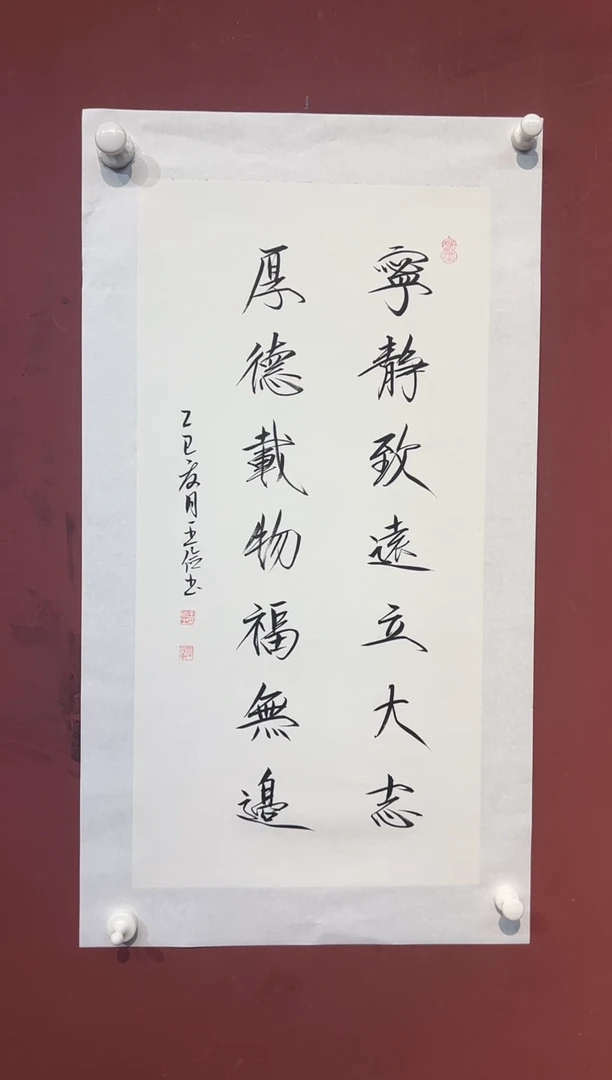 寧靜致遠立大志
厚德載物福無邊
乙巳夏月王俭书